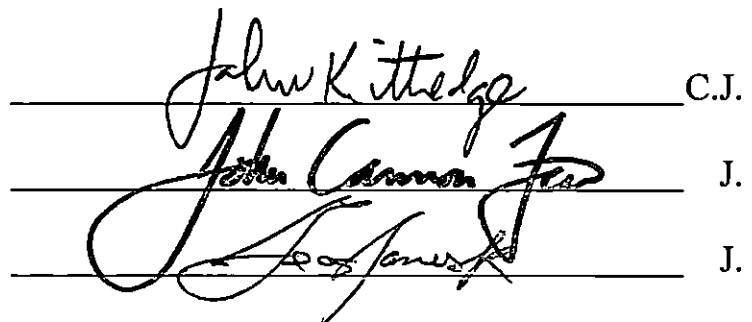 John Kittredge C.J.
John Cannon Few J.
James J.